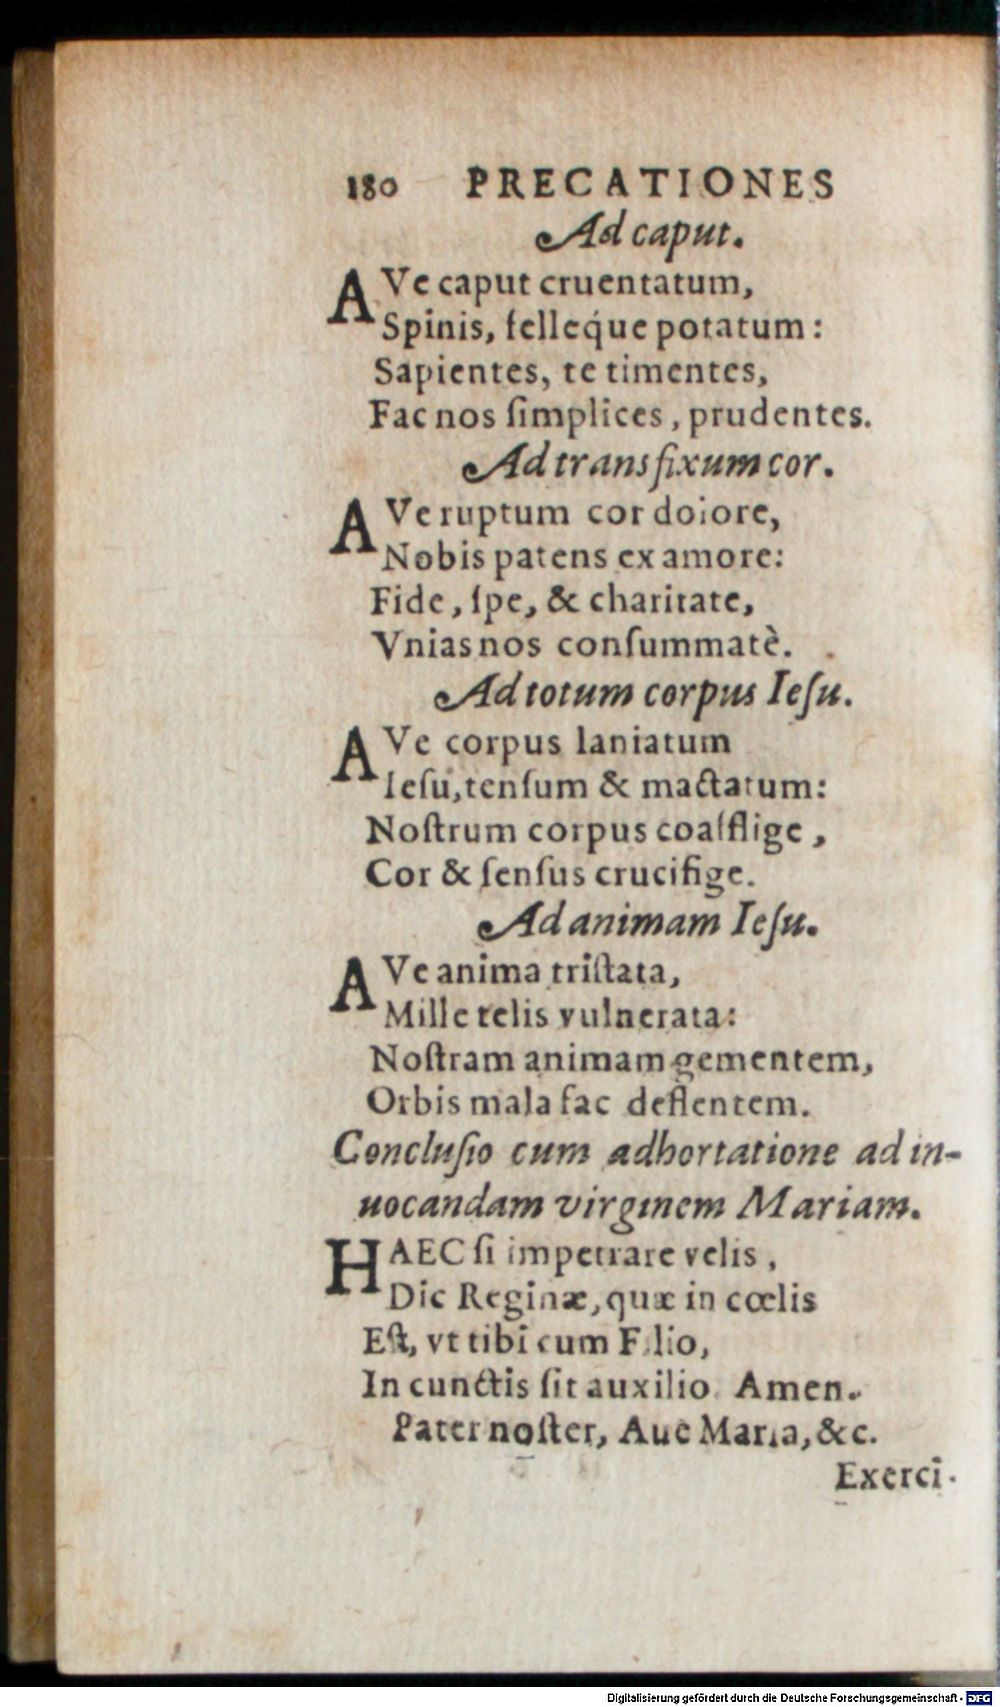 180 PRECATIONES
Ad caput.
AVe caput cruentatum,
Spinis, felleq́ue potatum:
Sapientes, te timentes,
Fac nos ſimplices, prudentes.
Ad transfixum cor.
AVe ruptum cor dolore,
Nobis patens ex amore:
Fide, ſpe, & charitate,
Vnias nos conſummatè.
Ad totum corpus Ieſu.
AVe corpus laniatum
Ieſu, tenſum & mactatum:
Noſtrum corpus coafflige,
Cor & ſenſus crucifige.
Ad animam Ieſu.
AVe anima triſtata,
Mille telis vulnerata:
Noſtram animam gementem,
Orbis mala fac deflentem.
Concluſio cum adhortatione ad in-
uocandam virginem Mariam.
HAEC ſi impetrare velis,
Dic Reginæ, quæ in cœlis
Eſt, vt tibi cum Filio,
In cunctis ſit auxilio. Amen.
Pater noſter, Aue Maria, &c.
Exerci-
Digitalisierung gefördert durch die Deutsche Forschungsgemeinschaft - DFG